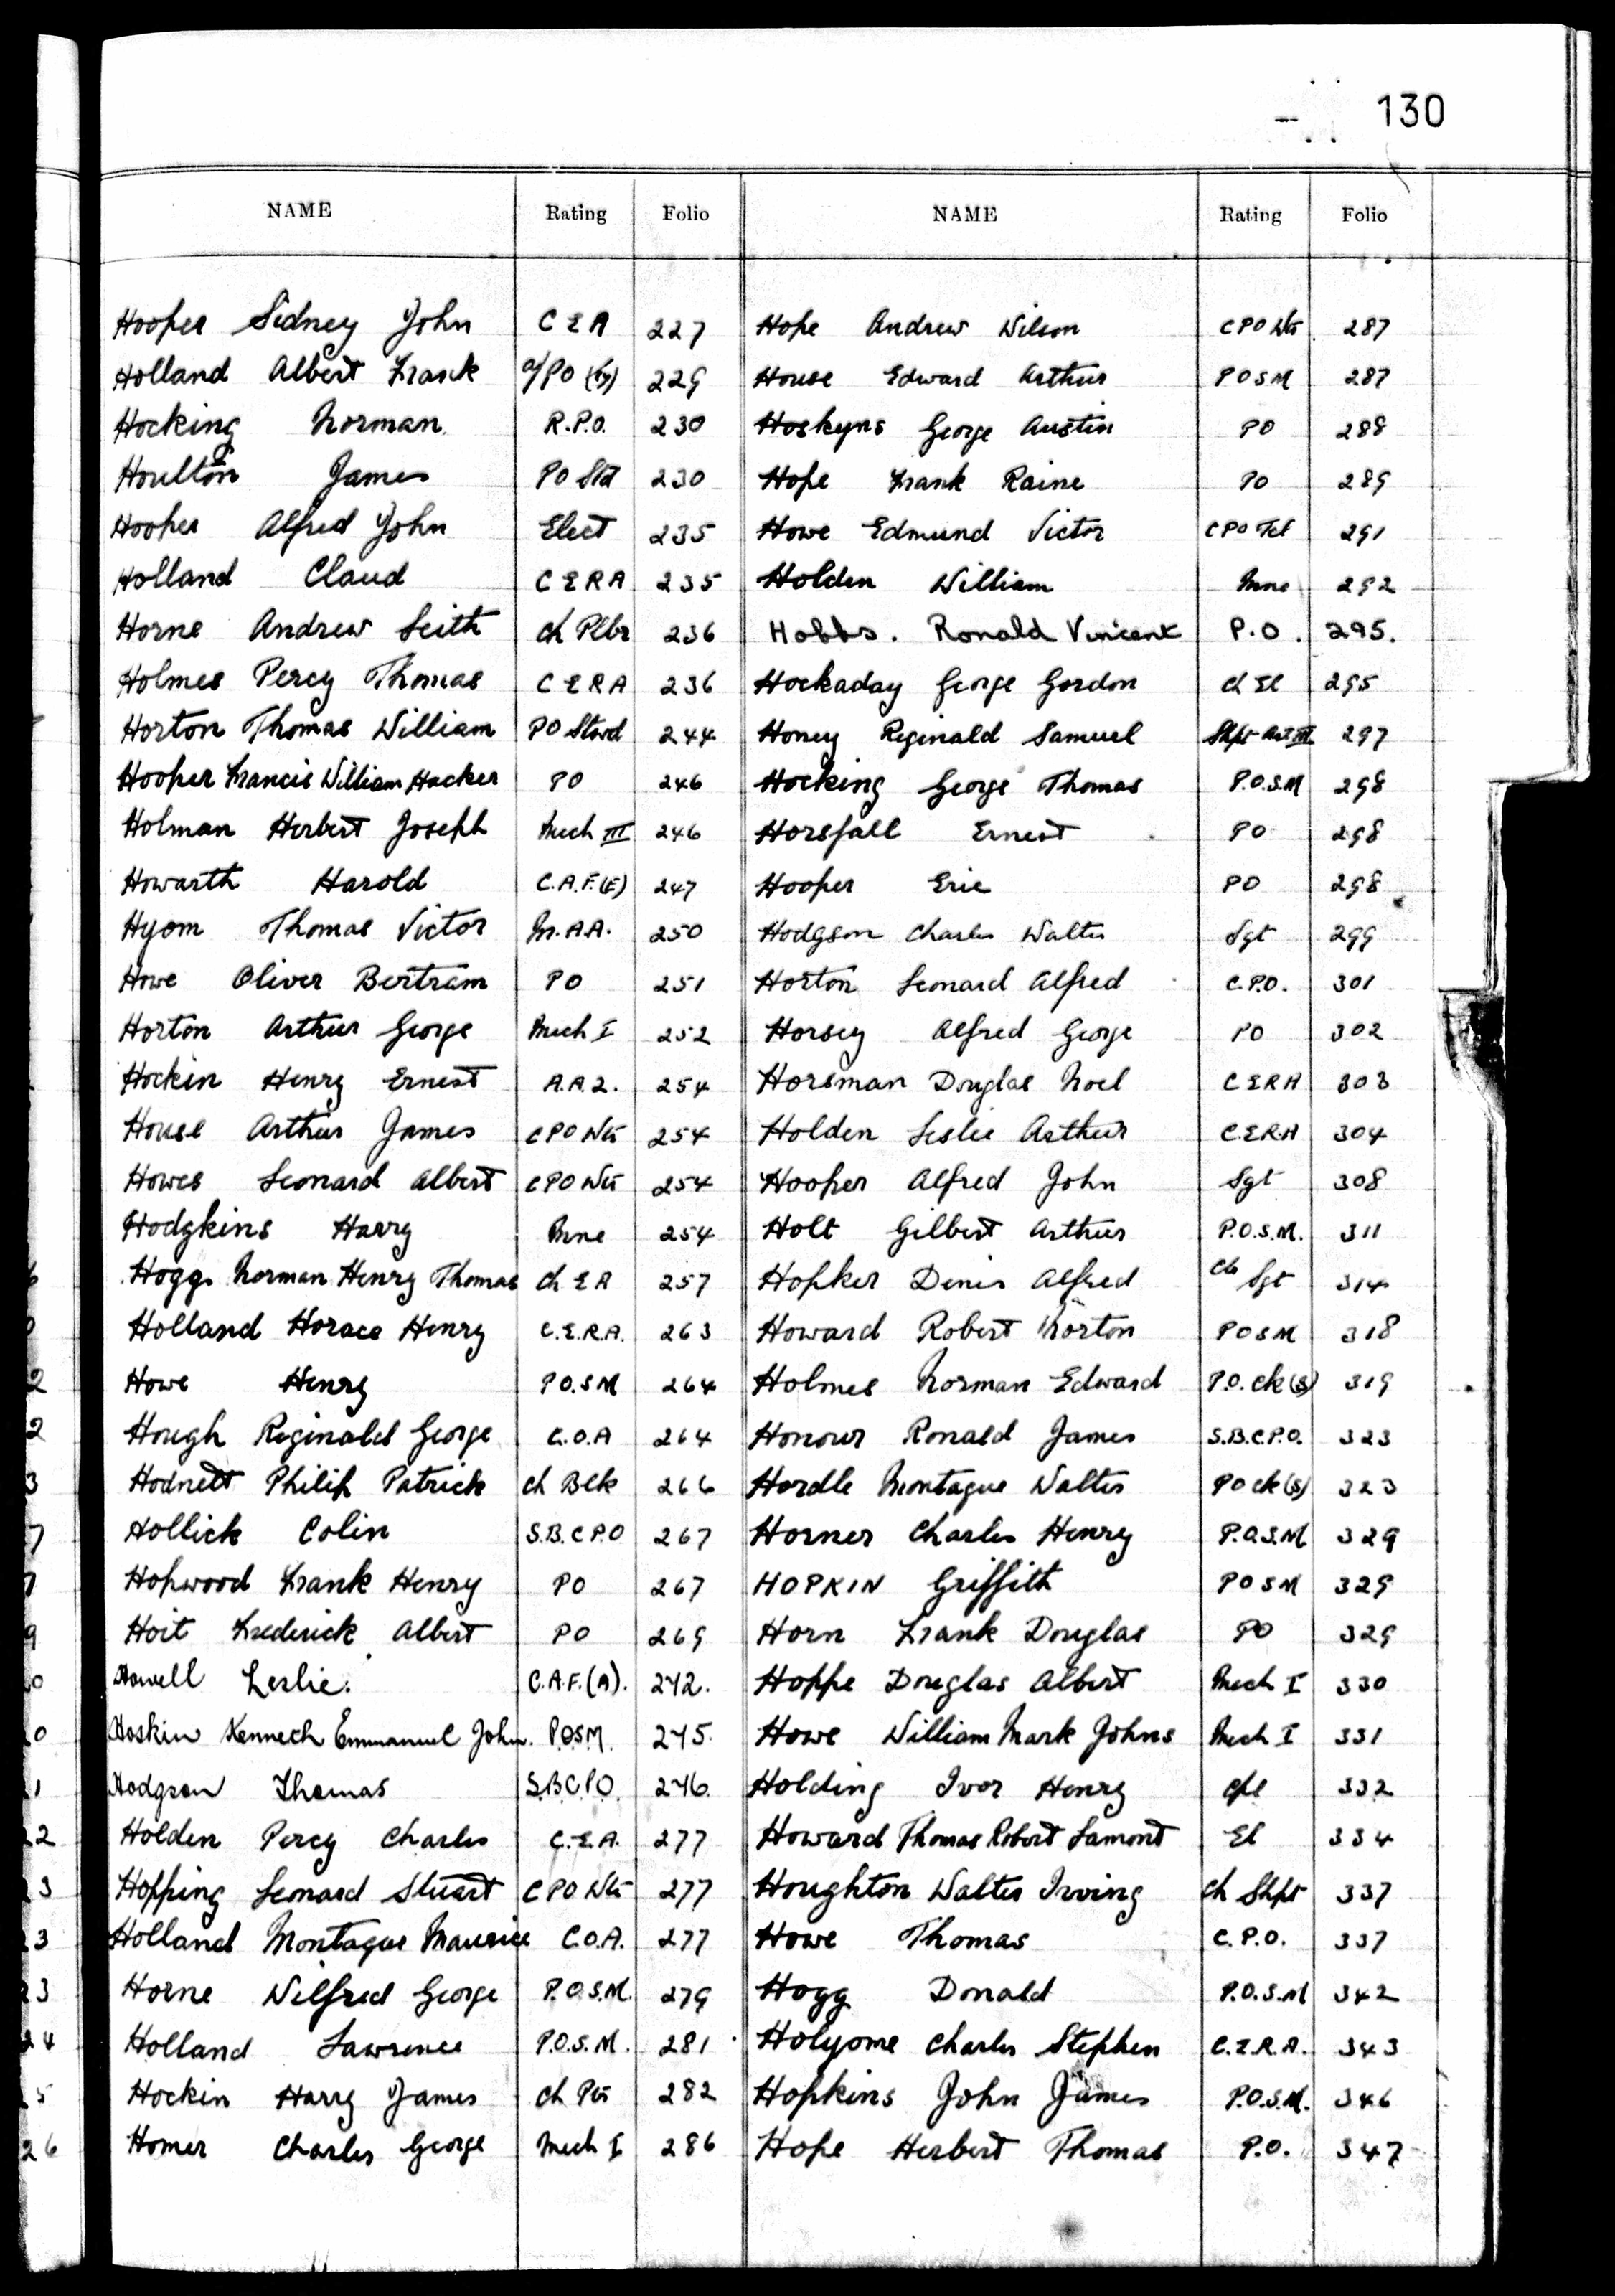 130
NAME Rating Folio NAME Rating Folio
Hooper Sidney John C E A 227 Hope Andrew Wilson CPO Wtr 287
Holland Albert Frank a/PO (Ty) 229 House Edward Arthur POSM 287
Hocking Norman R.P.O. 230 Hoskyns George Austin PO 288
Houlton James PO Std 230 Hope Frank Raine PO 289
Hooper Alfred John Elect 235 Howe Edmund Victor CPO Tel 291
Holland Claud C E R A 235 Holden William Mne 292
Horne Andrew Leith Ch Plbr 236 Hobbs. Ronald Vincent P.O. 295.
Holmes Percy Thomas C E R A 236 Hockaday George Gordon Ch El 295
Horton Thomas William PO Stwd 244 Honey Reginald Samuel Shpt Art III 297
Hooper Francis William Hacker PO 246 Hocking George Thomas P.O.S.M 298
Holman Herbert Joseph Mech III 246 Horsfall Ernest PO 298
Howarth Harold C.A.F.(E) 247 Hooper Eric PO 298
Hyom Thomas Victor M.A.A. 250 Hodgson Charles Walter Sgt 299
Howe Oliver Bertram PO 251 Horton Leonard Alfred C.P.O. 301
Horton Arthur George Mech I 252 Horsey Alfred George PO 302
Hockin Henry Ernest A.A.2. 254 Horsman Douglas Noel C E R A 303
House Arthur James CPO Wtr 254 Holden Leslie Arthur C.E.R.A 304
Howes Leonard Albert CPO Wtr 254 Hooper Alfred John Sgt 308
Hodgkins Harry Mne 254 Holt Gilbert Arthur P.O.S.M. 311
Hogg Norman Henry Thomas Ch E A 257 Hopker Denis Alfred Clr Sgt 314
Holland Horace Henry C.E.R.A. 263 Howard Robert Norton POSM 318
Howe Henry P.O.S M 264 Holmes Norman Edward P.O. Ck (s) 319
Hough Reginald George C.O.A 264 Honour Ronald James S.B.C.P.O. 323
Hodnett Philip Patrick Ch Blk 266 Hordle Montague Walter PO Ck (s) 323
Hollick Colin S.B.C P.O 267 Horner Charles Henry P.O.S.M 329
Hopwood Frank Henry PO 267 HOPKIN Griffith POSM 329
Hoit Frederick Albert PO 269 Horn Frank Douglas PO 329
Howell Leslie. C.A.F.(A). 272. Hoppe Douglas Albert Mech I 330
Hoskin Kenneth Emmanuel John. P.O.S.M. 275. Howe William Mark Johns Mech I 331
Hodgson Thomas S.B.C.P.O. 276. Holding Ivor Henry Cpl 332
Holden Percy Charles C.E.A. 277 Howard Thomas Robert Lamont El 334
Hopping Leonard Stuart CPO Wtr 277 Houghton Walter Irving Ch Shpt 337
Holland Montague Maurice C.O.A. 277 Howe Thomas C.P.O. 337
Horne Wilfred George P.O.S.M. 279 Hogg Donald P.O.S.M 342
Holland Lawrence P.O.S.M. 281 Holyome Charles Stephen C.E.R.A. 343
Hockin Harry James Ch Ptr 282 Hopkins John James P.O.S.M. 346
Homer Charles George Mech I 286 Hope Herbert Thomas P.O. 347